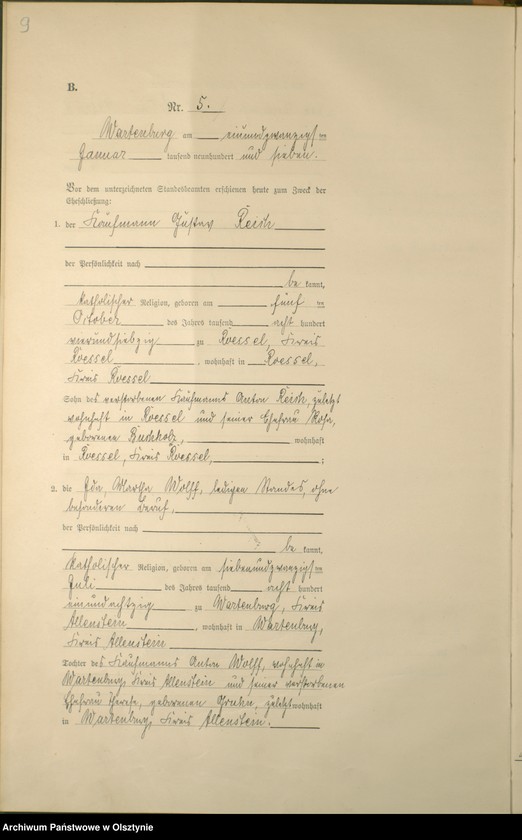 9
B.
Nr. 5.
Wartenburg am einundzwanzigsten
Januar tausend neunhundert und sieben.
Vor dem unterzeichneten Standesbeamten erschienen heute zum Zweck der
Eheschließung:
1. der Kaufmann Gustav Reich
der Persönlichkeit nach
be kannt,
katholischer Religion, geboren am fünf ten
October des Jahres tausend acht hundert
vierundsiebzig zu Roessel, Kreis
Roessel, wohnhaft in Roessel,
Kreis Roessel
Sohn des verstorbenen Kaufmanns Anton Reich, zuletzt
wohnhaft in Roessel und seiner Ehefrau Rosa,
geborenen Buchholz, wohnhaft
in Roessel, Kreis Roessel, ;
2. die Eda, Martha Wolff, ledigen Standes, ohne
besonderen Beruf,
der Persönlichkeit nach
be kannt,
katholischer Religion, geboren am siebenundzwanzigsten
Juli des Jahres tausend acht hundert
einundachtzig zu Wartenburg, Kreis
Allenstein, wohnhaft in Wartenburg,
Kreis Allenstein
Tochter des Kaufmanns Anton Wolff, wohnhaft in
Wartenburg, Kreis Allenstein und seiner verstorbenen
Ehefrau Therese, geborenen Gruhn, zuletzt wohnhaft
in Wartenburg, Kreis Allenstein.
Archiwum Państwowe w Olsztynie